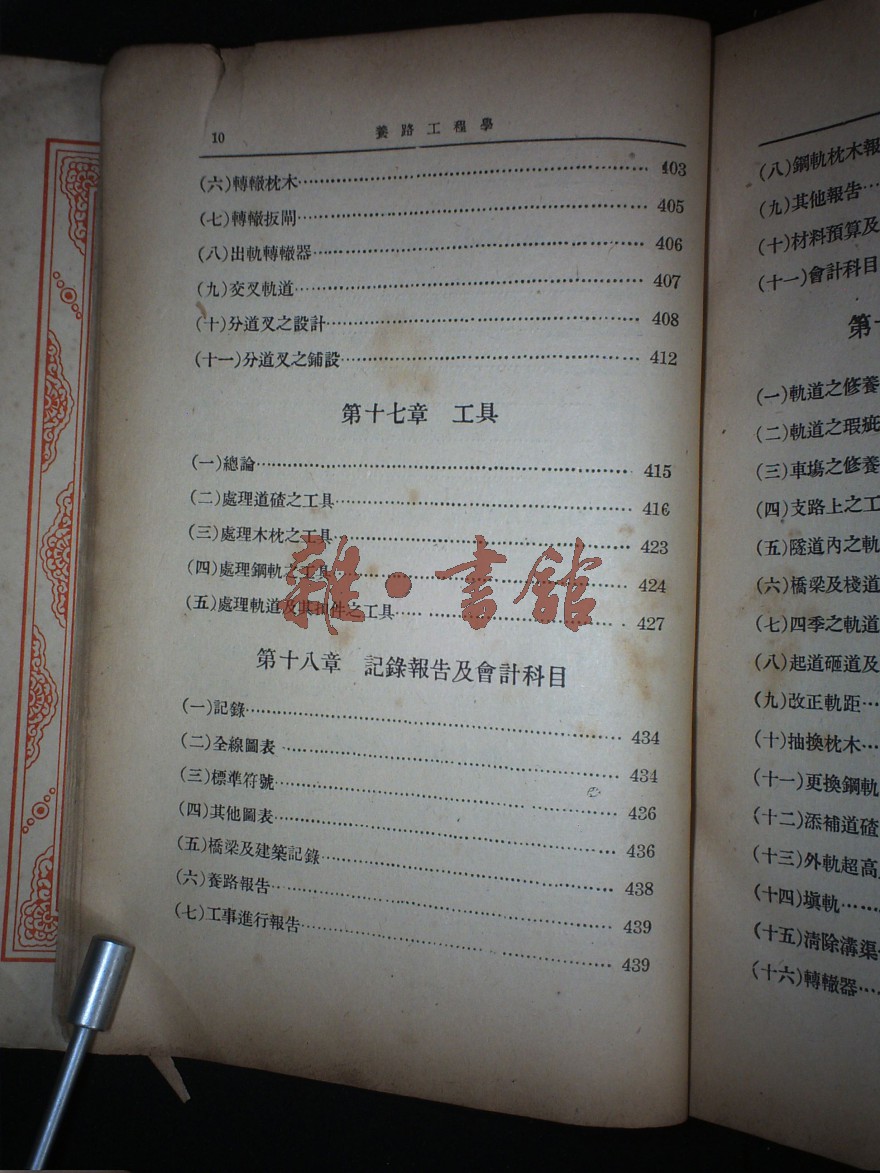 10
養路工程學
(六)轉轍枕木 403
(七)轉轍扳閘 405
(八)出軌轉轍器 406
(九)交叉軌道 407
(十)分道叉之設計 408
(十一)分道叉之鋪設 412
第十七章 工具
(一)總論 415
(二)處理道碴之工具 416
(三)處理木枕之工具 423
(四)處理鋼軌之工具 424
(五)處理軌道及其扣件之工具 427
雜·書館
第十八章 記錄報告及會計科目
(一)記錄 434
(二)全線圖表 434
(三)標準符號 436
(四)其他圖表 436
(五)橋梁及建築記錄 438
(六)養路報告 439
(七)工事進行報告 439
(八)鋼軌枕木報
(九)其他報告
(十)材料預算及
(十一)會計科目
第十
(一)軌道之修養
(二)軌道之瑕疵
(三)車塲之修養
(四)支路上之工
(五)隧道內之軌
(六)橋梁及棧道
(七)四季之軌道
(八)起道砸道及
(九)改正軌距
(十)抽換枕木
(十一)更換鋼軌
(十二)添補道碴
(十三)外軌超高
(十四)塡軌
(十五)清除溝渠
(十六)轉轍器